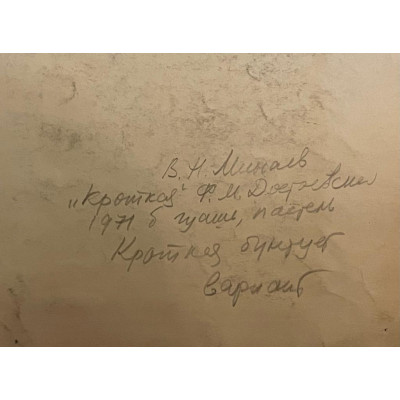 В. Н. Минаев
„Кроткая" Ф. М. Достоевского
1971 б гуашь, пастель
Кроткая бунтует
вариант